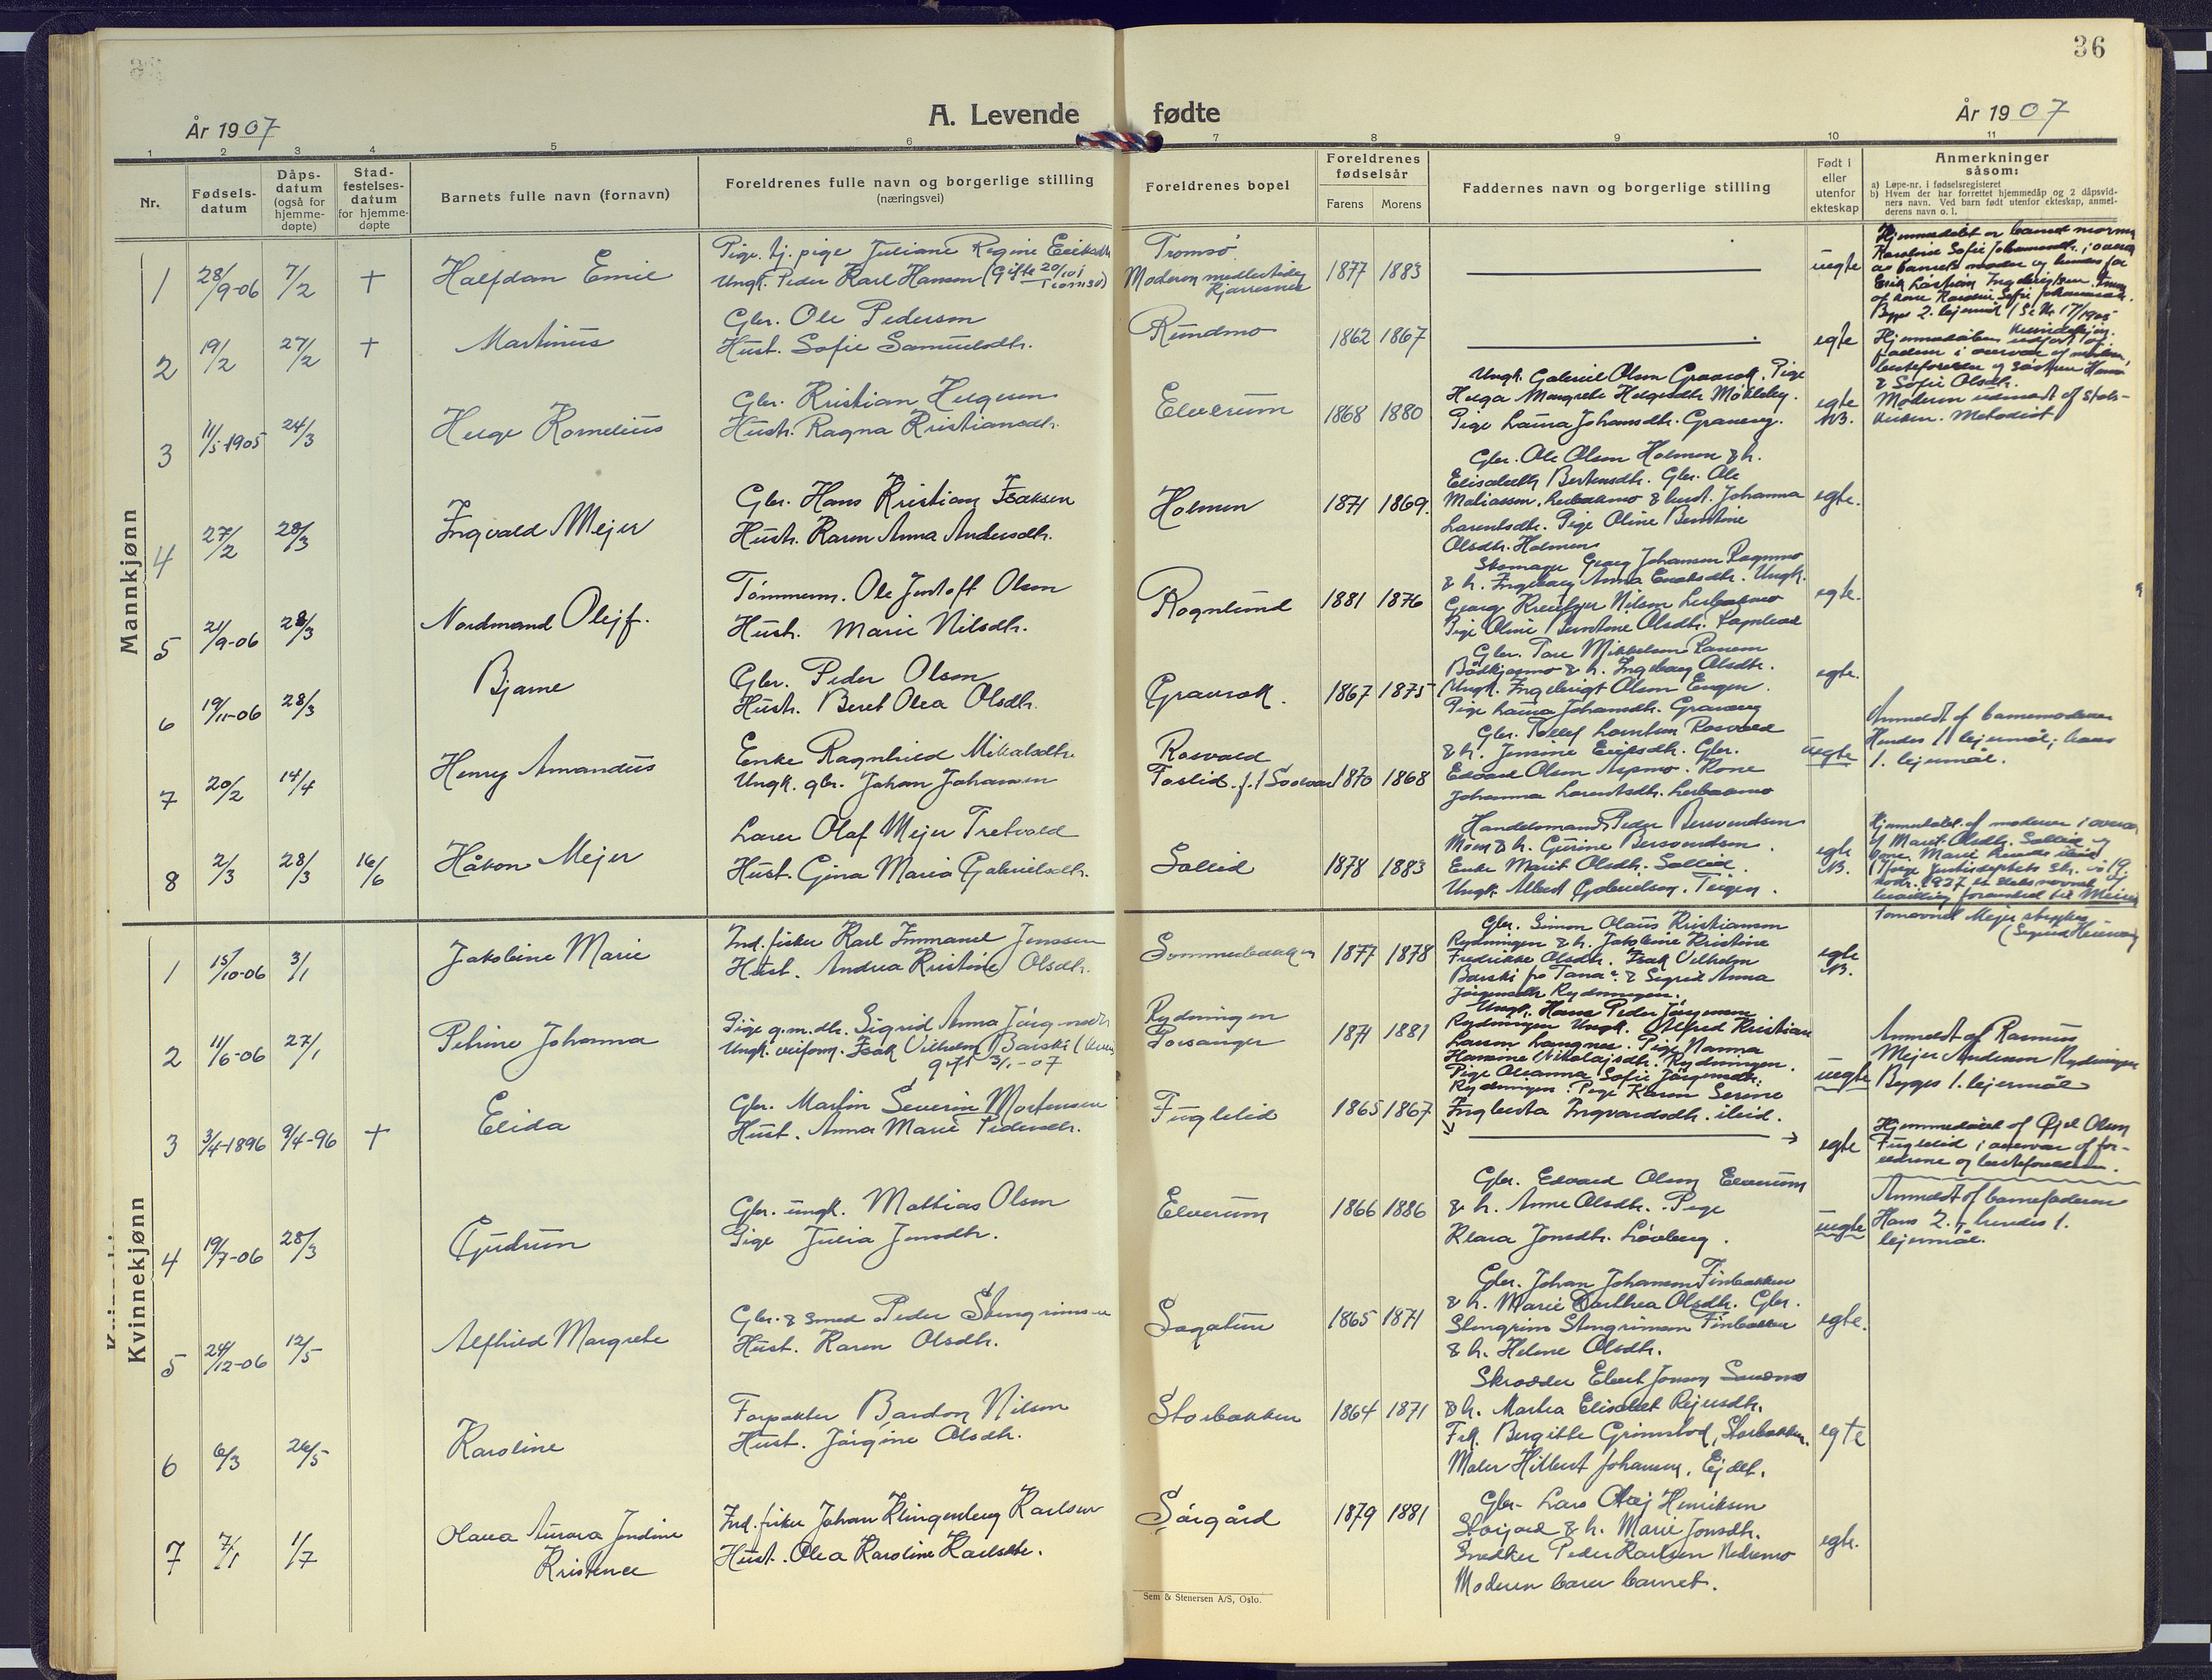 36
År 1907
A. Levende fødte
År 1907
1 2 3 4 5 6 7 8 9 10 11
Nr.
Fødsels-
datum
Dåps-
datum
(også for
hjemme-
døpte)
Stad-
festelses-
datum
for hjemme-
døpte
Barnets fulle navn (fornavn)
Foreldrenes fulle navn og borgerlige stilling
(næringsvei)
Foreldrenes bopel
Foreldrenes
fødselsår
Farens Morens
Faddernes navn og borgerlige stilling
Født i
eller
utenfor
ekteskap
Anmerkninger
såsom:
a) Løpe-nr. i fødselsregisteret
b) Hvem der har forrettet hjemmedåp og 2 dåpsvid-
ners navn. Ved barn født utenfor ekteskap, anmel-
derens navn o. l.
Mannkjønn
1 28/9-06 7/2 + Halfdan Emil
Pige. tj. pige Juliane Regine Eriksdtr
Ungk. Peder Karl Hansen (Gifte 20/10 i Tromsø)
Tromsø
Moderen medlertidig
1877 1883 uegte
Hjemmedøbt er barnet mormor
2 19/2 27/2 + Martinus
Gbr. Ole Pedersen
Hust. Sofie Samuelsdtr.
Rundmo 1862 1867 egte
Hjemmedåben udført af
faderen i overvær af
& Sofie Olsdtr.
3 11/5-1905 24/3 Helge Kornelius
Gbr. Kristian Helgesen
Hustr. Ragna Kristiansdtr.
Elverum 1868 1880
Ungk. Gabriel Olsen Gravrok. Pige
Helga Margrete Helgesdtr Mökleby.
Pige Laura Johansdtr. Graneng.
egte
NB.
Moderen udmeldt af stats-
kirken. Methodist
4 27/2 28/3 Ingvald Mejer
Gbr. Hans Kristian Isaksen
Hustr. Karen Anna Andersdtr.
Holmen 1871 1869
Gbr. Ole Olsen Holmen & h.
Elisabeth Bertensdtr. Gbr. Ole
Mathiassen, Lerbakmo & hust. Johanna
Larentsdtr. Pige Oline Berntine
Olsdtr. Holmen
egte.
5 21/9-06 28/3 Nordmand Olejf.
Tømmerm. Ole Justoft Olsen
Hustr. Marie Nilsdtr.
Rognlund 1881 1876
Skomager Georg Johansen Rognmo
& h. Ingeborg Anna Enoksdtr. Ungk.
Georg Nilsen Lerbakmo
Pige Oline Berntine Olsdtr.
egte.
6 19/11-06 28/3 Bjarne
Gbr. Peder Olsen
Hustr. Beret Olea Olsdtr.
Gravrok. 1867 1875
Gbr. Tore Mikkelsen
& h. Ingeborg Olsdtr.
Ungk. Ingebrigt Olsen Engen.
Pige Laura Johansdtr. Graneng
egte.
7 20/2 14/4 Henry Amandus
Enke Ragnhild Mikalsdtr
Ungk. gbr. Johan Johansen
Rosvold
1870 1868
Gbr. Tollef Larntsen Rosvold
& h. Jensine Eriksdtr. Gbr.
Edvard Olsen Aspmo. Kone
Johanna Larentsdtr. Lerbakmo
uegte
Anmeldt af barnemoderen
Hendes 1. lejermål; hans
1. lejermål.
8 2/3 28/3 16/6 Håkon Mejer
Lærer Olaf Mejer Tretvold
Hust. Gina Maria Gabrielsdtr.
Sollid 1878 1883
Handelsmand Peder Bersvendsen
Moen & h. Gurine Bersvendsen.
Enke Marit Olsdtr. Sollid.
Ungk. Albert Gabrielsen. Teigen.
egte
NB.
Hjemmedøbt af moderen i overvær
af Marit Olsdtr. Sollid og
Fornavnet Mejer strykes
Kvinnekjønn
1 15/10-06 3/1 Jakobine Marie
Ind. fisker Karl Immanuel Jenssen
Hust. Andrea Kristine Olsdtr.
Sommerbakken 1877 1878
Gbr. Simon Olaus Kristiansen
Rydningen & h. Jakobine Kristine
Fredrikke Olsdtr. Isak Vilhelm
Barski fra Tana & Sigrid Anna
Jørgensdtr Rydningen.
egte
NB.
2 11/6-06 27/1 Petrine Johanna
Pige g.m.dtr. Sigrid Anna Jørgensdtr
Ungk. Isak Vilhelm Barski
gift 3/1-07
Rydningen
Porsanger
1871 1881
Ungk. Hans Peder Jørgensen
Rydningen Ungk. Alfred Kristian
Larsen Langnes. Pige Nanna
Hansine Nikolajsdtr. Rydningen.
Pige Oleanna Sofie Jørgensdtr.
Rydningen. Pige Karen Serine
Ingberta Ingvardsdtr. ibid.
uegte
Anmeldt af Rasmus
Mejer Andersen Rydningen
Begges 1. lejermål
3 3/4-1896 9/4-96 + Elida
Gbr. Martin Severin Mortensen
Hust. Anna Marie Pedersdtr.
Fuglelid 1865 1867 egte
Hjemmedøbt af Ole Olsen
Fuglelid i overvær af for-
ældrene og bedsteforældrene.
4 19/7-06 28/3 Gudrun
Gbr. ungk. Mathias Olsen
Pige Julia Jonsdtr.
Elverum 1866 1886
Gbr. Edvard Olsen Elverum
& h. Anne Olsdtr. Pige
Klara Jonsdtr. Løvberg.
uegte
Anmeldt af barnefaderen
Hans 2. & hendes 1.
lejermål.
5 24/12-06 12/5 Alfhild Margrete
Gbr. & smed Peder Stengrimsen
Hust. Karen Olsdtr.
Sagatun 1865 1871
Gbr. Johan Johansen Finbakken
& h. Marie Dorthea Olsdtr. Gbr.
Stengrim Stengrimsen Finbakken
& h. Helene Olsdtr.
egte.
6 6/3 26/5 Karoline
Forpakter Bardon Nilsen
Hust. Jørgine Olsdtr.
Storbakken 1864 1871
Skrædder Elert Jensen
& h. Marta Elisabet Rejersdtr.
Frk. Bergitte Grimstad, Storbakken.
Maler Hilbert Johansen, Ejdet.
egte
7 7/1 1/7 Olava Aurora Jendine
Kristence
Ind. fisker Johan Klingenberg Karlsen
Hust. Olea Karoline Karlsdtr.
Sørgård 1879 1881
Gbr. Lars Olaj Henriksen
Storjord & h. Marie Jonsdtr.
Snedker Peder Karlsen Nedremo
Moderen barer barnet.
egte.
Sem & Stenersen A/S, Oslo.